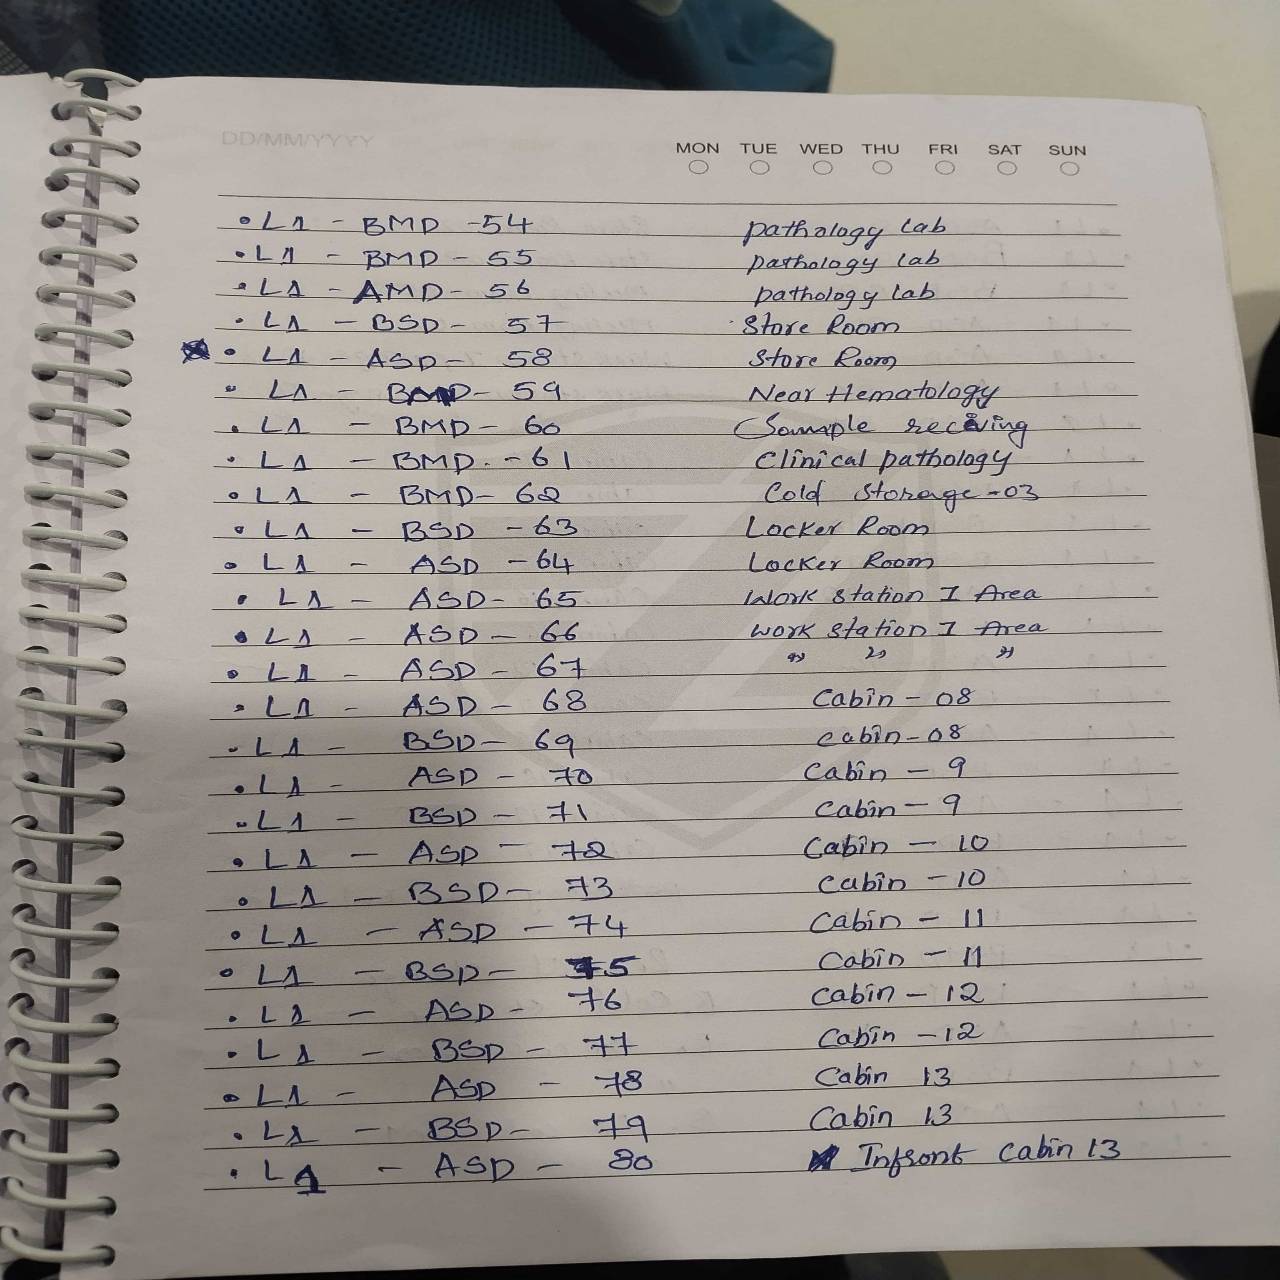 DD/MM/YYYY MON TUE WED THU FRI SAT SUN
• L1 - BMD - 54 pathology lab
• L1 - BMD - 55 pathology lab
• L1 - AMD - 56 pathology lab
• L1 - BSD - 57 Store Room
• L1 - ASD - 58 Store Room
• L1 - BMD - 59 Near Hematology
• L1 - BMD - 60 Sample receving
• L1 - BMD - 61 Clinical pathology
• L1 - BMD - 62 Cold Storage - 03
• L1 - BSD - 63 Locker Room
• L1 - ASD - 64 Locker Room
• L1 - ASD - 65 Work Station I Area
• L1 - ASD - 66 Work Station I Area
• L1 - ASD - 67 " " "
• L1 - ASD - 68 Cabin - 08
• L1 - BSD - 69 cabin - 08
• L1 - ASD - 70 Cabin - 9
• L1 - BSD - 71 Cabin - 9
• L1 - ASD - 72 Cabin - 10
• L1 - BSD - 73 Cabin - 10
• L1 - ASD - 74 Cabin - 11
• L1 - BSD - 75 Cabin - 11
• L1 - ASD - 76 Cabin - 12
• L1 - BSD - 77 Cabin - 12
• L1 - ASD - 78 Cabin 13
• L1 - BSD - 79 Cabin 13
• L1 - ASD - 80 Infront Cabin 13